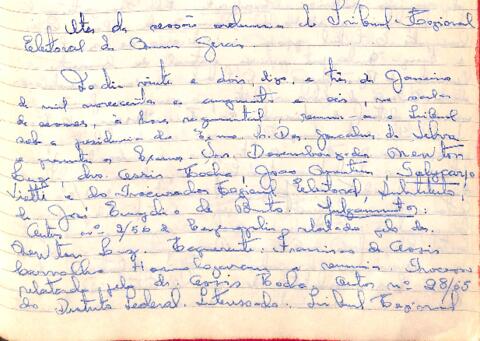 Ata da sessão ordinaria do Tribunal Regional
Eleitoral de Minas Gerais.
Ao dia vinte e dois digo, e três de Janeiro
de mil novecentos e cinquenta e seis, na sala
de sessões, à hora regimental, reuniu-se o Tribunal
sob a presidencia do Exmo. Sr. Des. Gonçalves da Silva
e presentes os Exmos. Srs. Desembargador Newton
Luz, drs. Cassio Rocha, João Martins,
e do Procurador Regional Eleitoral, Substituto,
dr. José Eugydio de Brito. Julgamentos:
Autos nº 2/56 de relatado pelo des.
Newton Luz. Requerente: Francisco de Assis
Carvalho. Homologaram a renuncia. Processo
relatado pelo dr. Cassio Rocha, Autos nº 28/65
do Distrito Federal. Interessado. Tribunal Regional